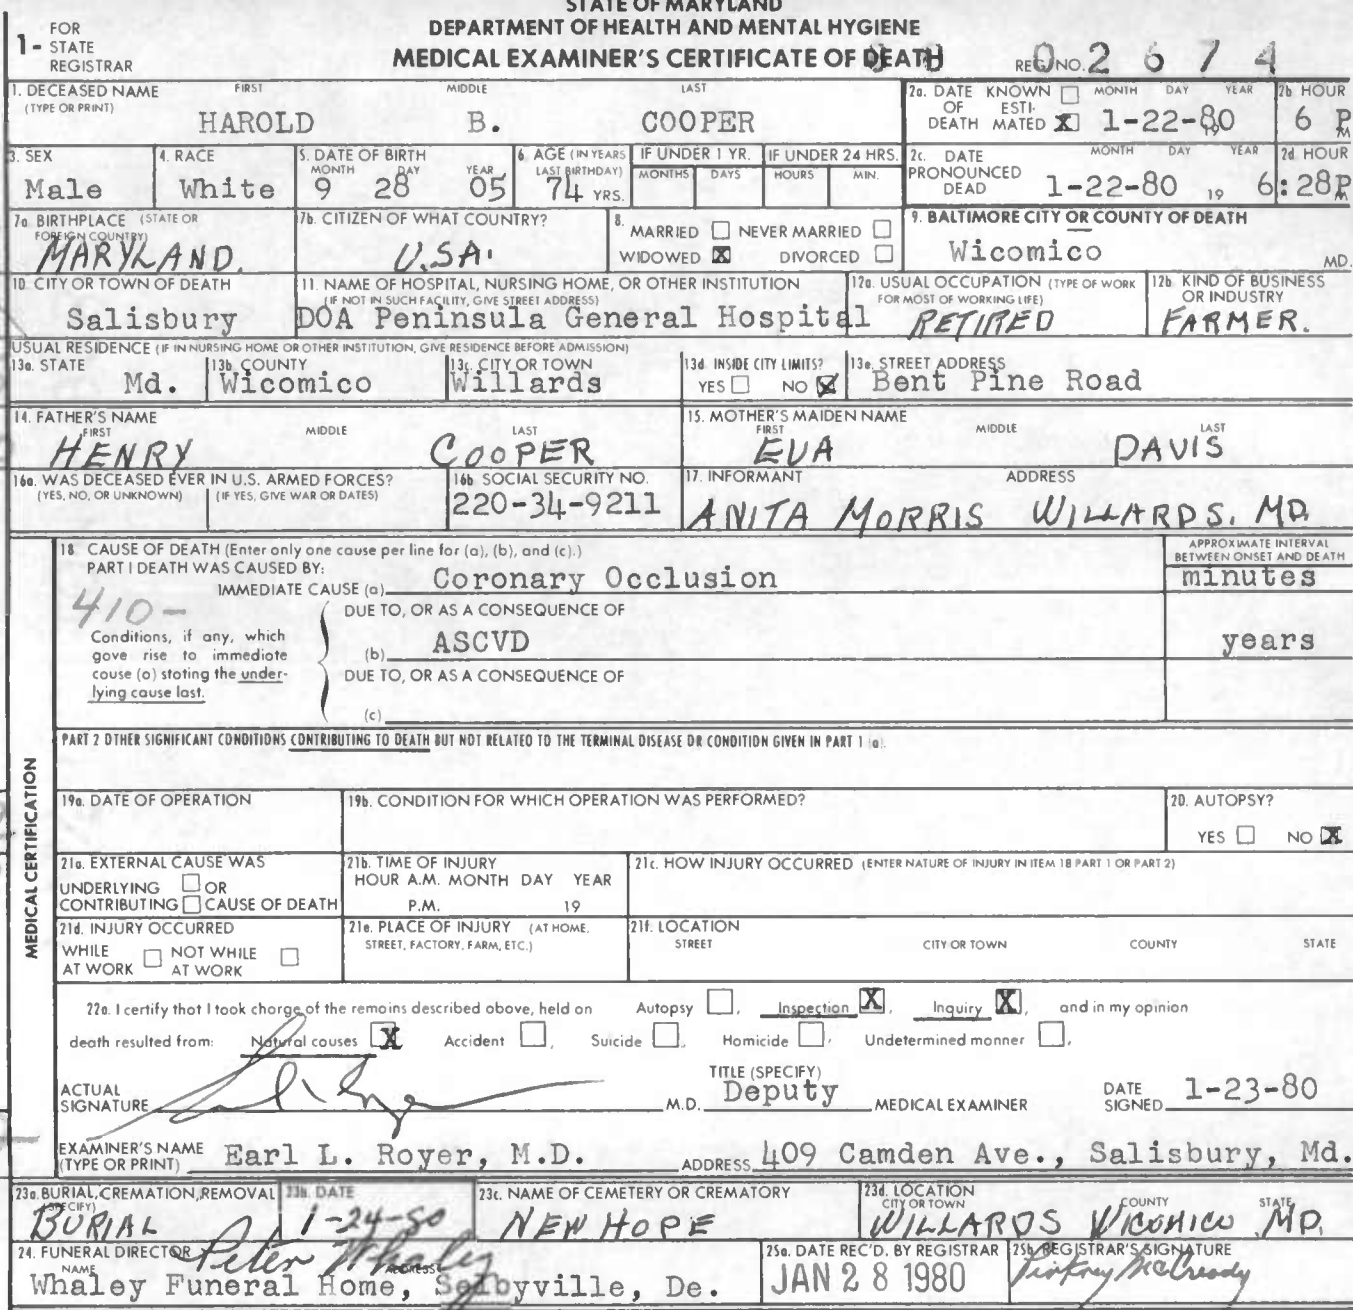 STATE OF MARYLAND
DEPARTMENT OF HEALTH AND MENTAL HYGIENE
MEDICAL EXAMINER'S CERTIFICATE OF DEATH
1- FOR STATE REGISTRAR
REG. NO. 02674
1. DECEASED NAME (TYPE OR PRINT) FIRST MIDDLE LAST
HAROLD B. COOPER
2a. DATE OF DEATH KNOWN ☐ ESTIMATED ☒ MONTH DAY YEAR
1-22-80
2b HOUR
6 P M
3. SEX
Male
4. RACE
White
5. DATE OF BIRTH MONTH DAY YEAR
9 28 05
6. AGE (IN YEARS LAST BIRTHDAY)
74 YRS.
IF UNDER 1 YR. MONTHS DAYS
IF UNDER 24 HRS. HOURS MIN.
2c. DATE PRONOUNCED DEAD MONTH DAY YEAR
1-22-80 19
2d HOUR
6:28P M
7a BIRTHPLACE (STATE OR FOREIGN COUNTRY)
MARYLAND.
7b. CITIZEN OF WHAT COUNTRY?
U.S.A.
8. MARRIED ☐ NEVER MARRIED ☐
WIDOWED ☒ DIVORCED ☐
9. BALTIMORE CITY OR COUNTY OF DEATH
Wicomico MD.
10. CITY OR TOWN OF DEATH
Salisbury
11. NAME OF HOSPITAL, NURSING HOME, OR OTHER INSTITUTION
(IF NOT IN SUCH FACILITY, GIVE STREET ADDRESS)
DOA Peninsula General Hospital
12a. USUAL OCCUPATION (TYPE OF WORK FOR MOST OF WORKING LIFE)
RETIRED
12b. KIND OF BUSINESS OR INDUSTRY
FARMER.
USUAL RESIDENCE (IF IN NURSING HOME OR OTHER INSTITUTION, GIVE RESIDENCE BEFORE ADMISSION)
13a. STATE
Md.
13b. COUNTY
Wicomico
13c. CITY OR TOWN
Willards
13d. INSIDE CITY LIMITS?
YES ☐ NO ☒
13e. STREET ADDRESS
Bent Pine Road
14. FATHER'S NAME FIRST MIDDLE LAST
HENRY COOPER
15. MOTHER'S MAIDEN NAME FIRST MIDDLE LAST
EVA DAVIS
16a. WAS DECEASED EVER IN U.S. ARMED FORCES?
(YES, NO, OR UNKNOWN) (IF YES, GIVE WAR OR DATES)
16b SOCIAL SECURITY NO.
220-34-9211
17. INFORMANT ADDRESS
ANITA MORRIS WILLARDS, MD.
MEDICAL CERTIFICATION
18. CAUSE OF DEATH (Enter only one cause per line for (a), (b), and (c).)
PART I DEATH WAS CAUSED BY:
APPROXIMATE INTERVAL BETWEEN ONSET AND DEATH
IMMEDIATE CAUSE (a) Coronary Occlusion minutes
410-
DUE TO, OR AS A CONSEQUENCE OF
Conditions, if any, which gave rise to immediate cause (a) stating the underlying cause last.
(b) ASCVD years
DUE TO, OR AS A CONSEQUENCE OF
(c)
PART 2 OTHER SIGNIFICANT CONDITIONS CONTRIBUTING TO DEATH BUT NOT RELATED TO THE TERMINAL DISEASE OR CONDITION GIVEN IN PART 1 (a).
19a. DATE OF OPERATION
19b. CONDITION FOR WHICH OPERATION WAS PERFORMED?
20. AUTOPSY?
YES ☐ NO ☒
21a. EXTERNAL CAUSE WAS
UNDERLYING ☐ OR
CONTRIBUTING ☐ CAUSE OF DEATH
21b. TIME OF INJURY
HOUR A.M. MONTH DAY YEAR
P.M. 19
21c. HOW INJURY OCCURRED (ENTER NATURE OF INJURY IN ITEM 18 PART 1 OR PART 2)
21d. INJURY OCCURRED
WHILE AT WORK ☐ NOT WHILE AT WORK ☐
21e. PLACE OF INJURY (AT HOME, STREET, FACTORY, FARM, ETC.)
21f. LOCATION
STREET CITY OR TOWN COUNTY STATE
22a. I certify that I took charge of the remains described above, held on Autopsy ☐, Inspection ☒, Inquiry ☒, and in my opinion
death resulted from: Natural causes ☒ Accident ☐, Suicide ☐, Homicide ☐, Undetermined manner ☐,
ACTUAL SIGNATURE M.D.
TITLE (SPECIFY)
Deputy MEDICAL EXAMINER
DATE SIGNED 1-23-80
EXAMINER'S NAME (TYPE OR PRINT) Earl L. Royer, M.D. ADDRESS 409 Camden Ave., Salisbury, Md.
23a. BURIAL, CREMATION, REMOVAL (SPECIFY)
BURIAL
23b. DATE
1-24-80
23c. NAME OF CEMETERY OR CREMATORY
NEW HOPE
23d. LOCATION CITY OR TOWN COUNTY STATE
WILLARDS WICOMICO MD.
24. FUNERAL DIRECTOR Peter Whaley
NAME ADDRESS
Whaley Funeral Home, Selbyville, De.
25a. DATE REC'D. BY REGISTRAR
JAN 28 1980
25b. REGISTRAR'S SIGNATURE
McCready